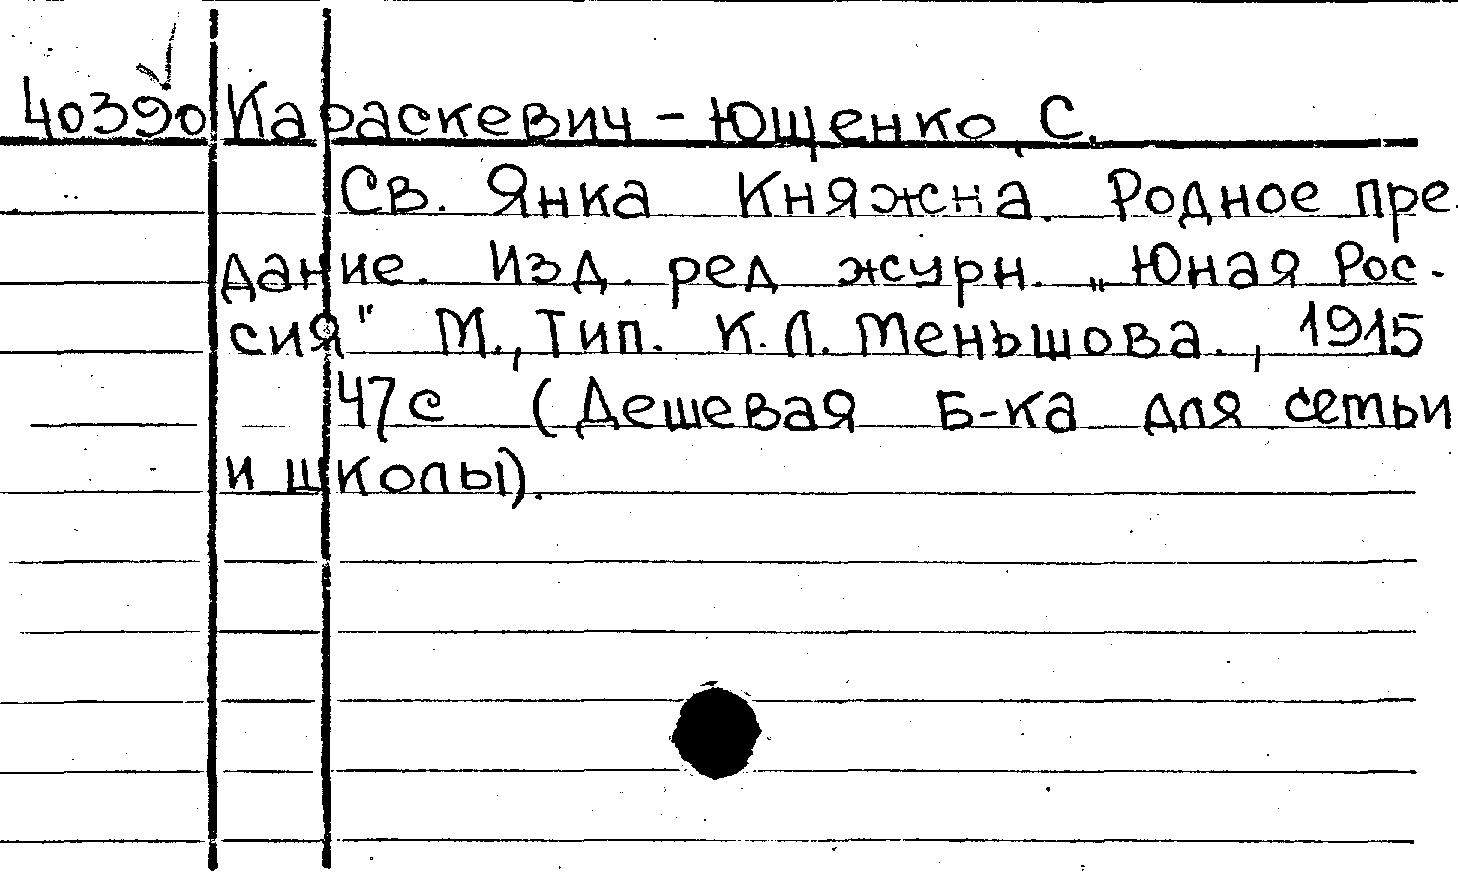 40390 Караскевич - Ющенко, С.
Св. Янка Княжна. Родное пре
дание. Изд. ред журн. „Юная Рос-
сия" М., Тип. К.Л. Меньшова., 1915
47с (Дешевая Б-ка для сетьи
и школы).